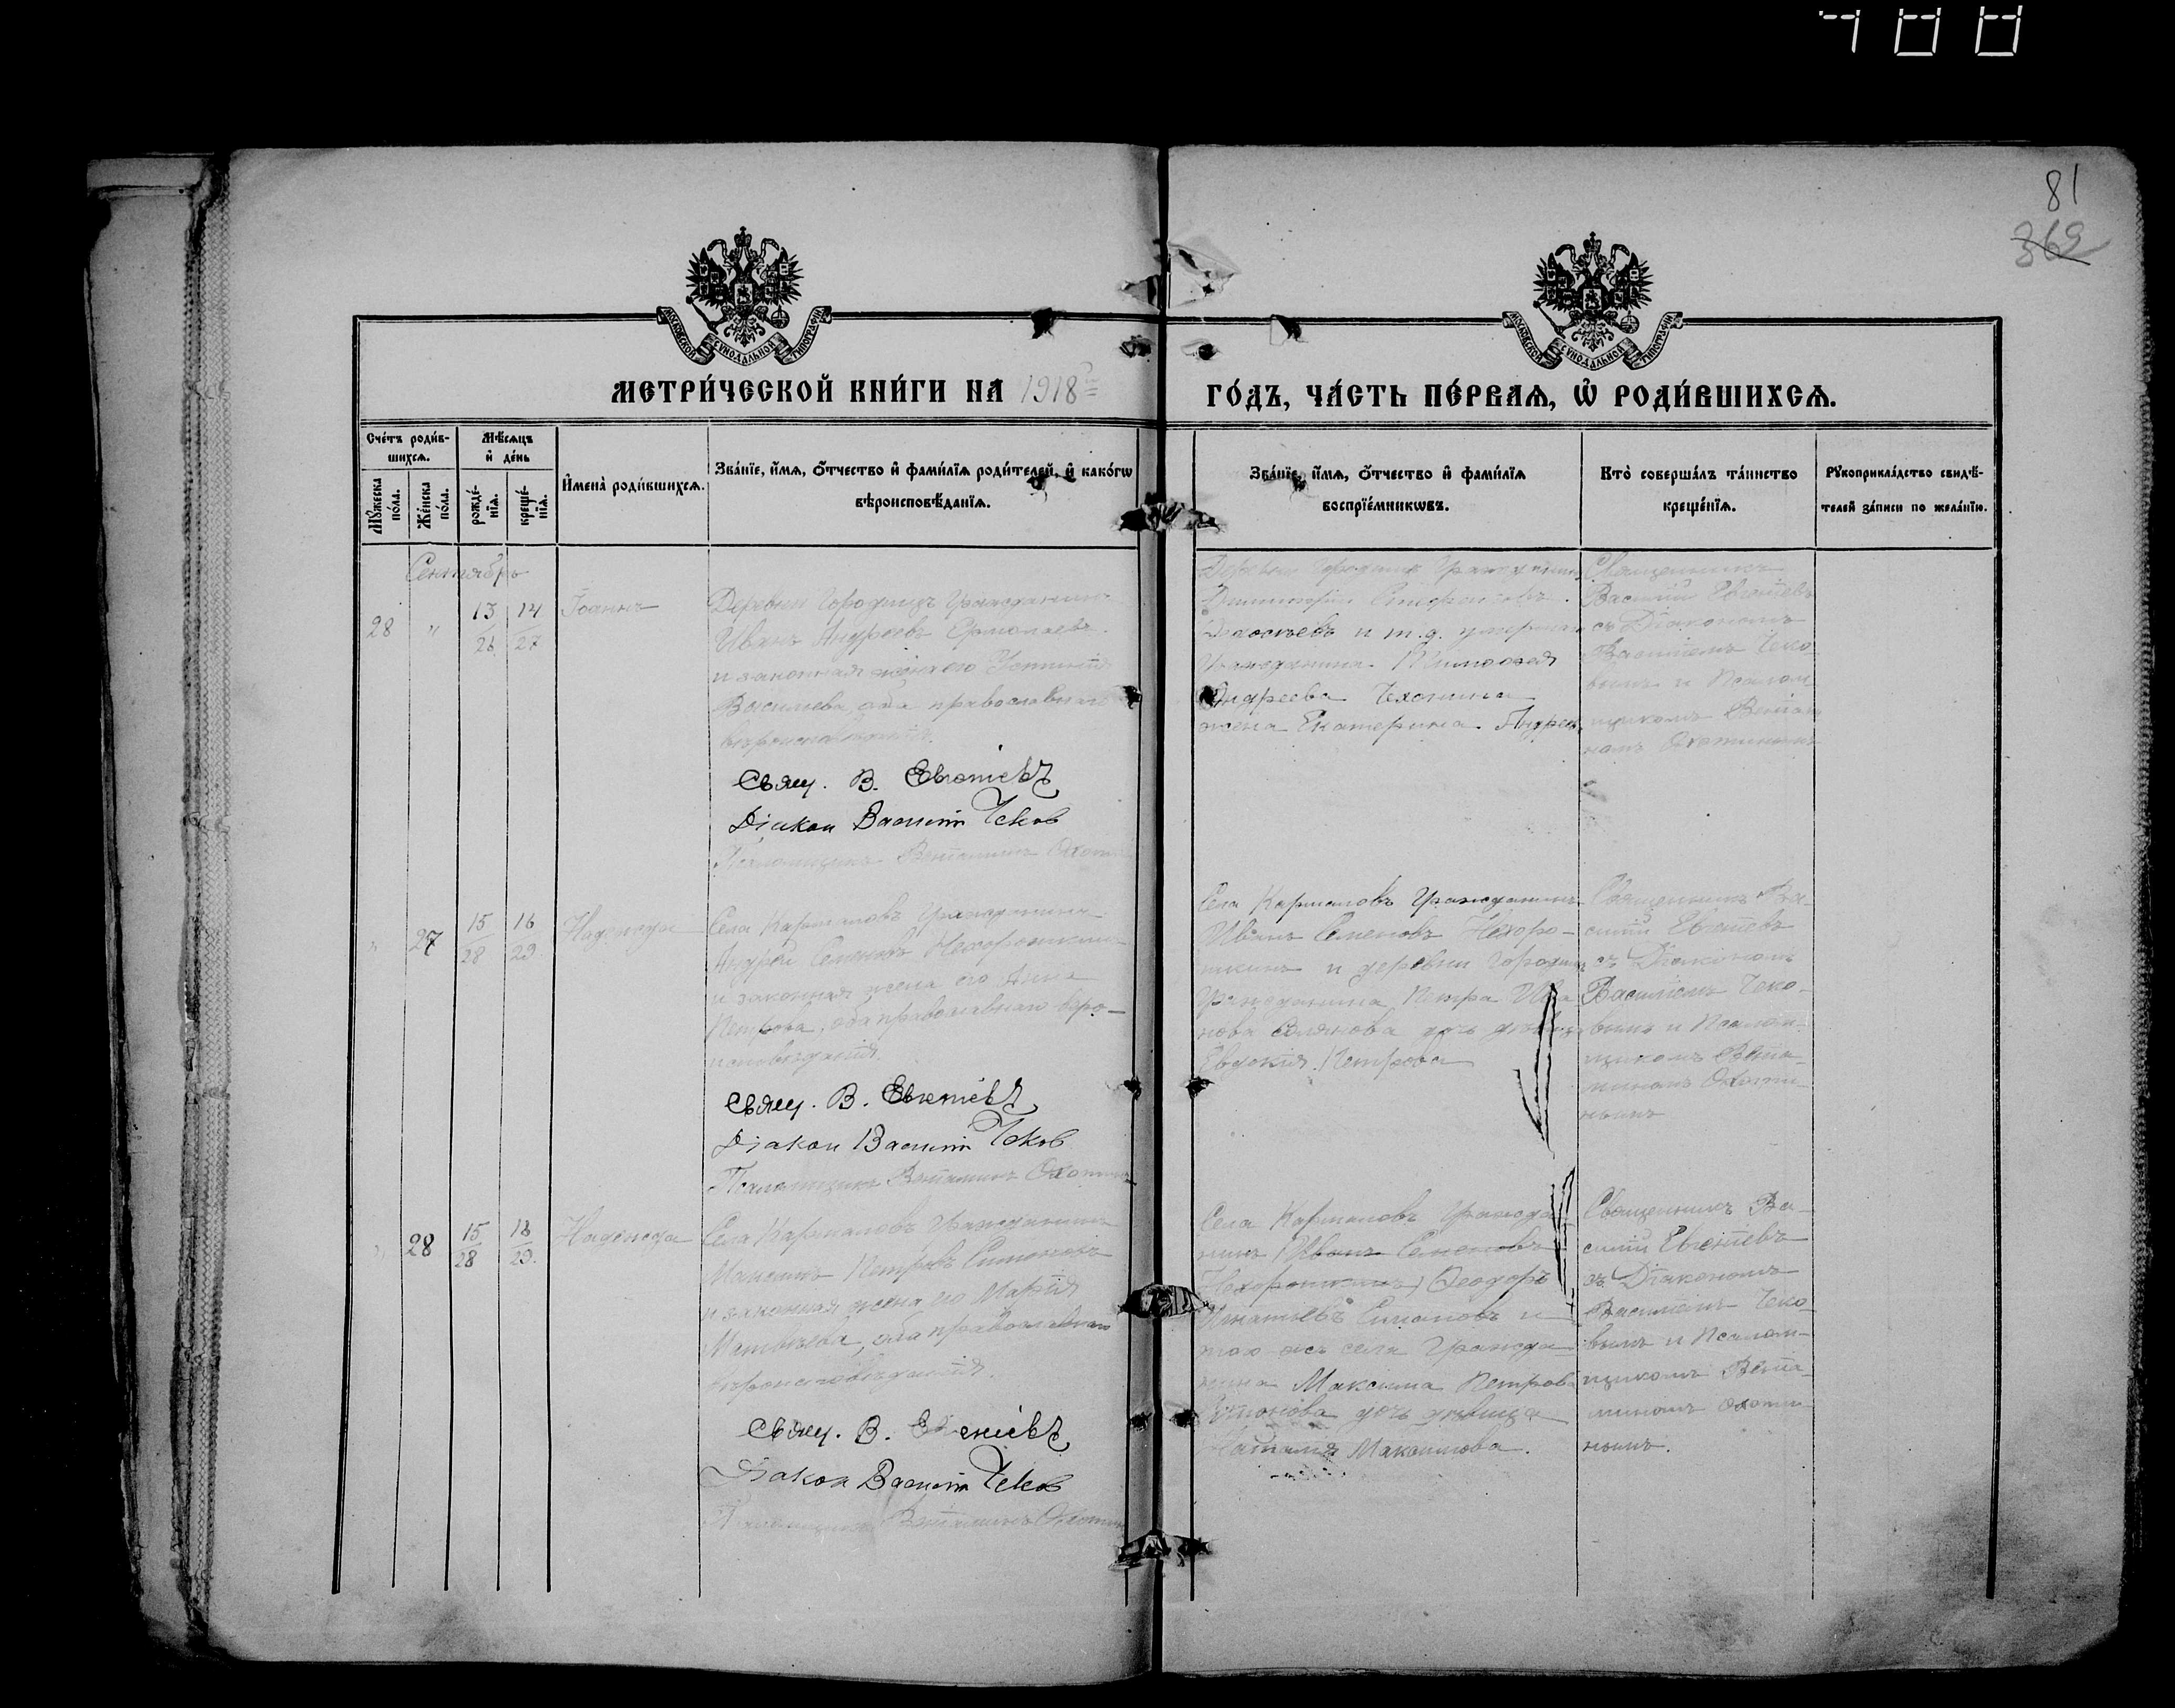 81
369
МОСКОВСКОЙ СУНОДАЛЬНОЙ ТИПОГРАФІИ
МОСКОВСКОЙ СУНОДАЛЬНОЙ ТИПОГРАФІИ
МЕТРИ́ЧЕСКОЙ КНИ́ГИ НА 1918 ГО́ДЪ, ЧА́СТЬ ПЕ́РВАѦ, Ѡ҆ РОДИ́ВШИХСѦ.
Сче́тъ роди́в-
шихсѧ.
Мꙋ́жеска по́ла.
Же́нска по́ла.
Мѣ́сѧцъ
и҆ де́нь
рожде́-
нїѧ.
креще́-
нїѧ.
И҆мена̀ роди́вшихсѧ.
Зва́нїе, и҆́мѧ, ѻ҆́тчество и҆ фами́лїѧ роди́телей, и҆ како́гѡ
вѣроисповѣ́данїѧ.
Зва́нїе, и҆́мѧ, ѻ҆́тчество и҆ фами́лїѧ
воспрїе́мникѡвъ.
Кто̀ соверша́лъ та́инство
креще́нїѧ.
Рꙋкоприкла́дство свидѣ́-
телей за́писи по жела́нїю.
Сентябрь
28 " 13/26 14/27 Іоаннъ
Деревни Городищъ Гражданинъ
Иванъ Андреевъ Ермолаевъ
и законная жена его Устинія
Васильева, оба православнаго
вѣроисповѣданія.
Свящ. В. Евгеніевъ
Діакон Василій Чеков
Псаломщикъ Веніаминъ
Деревни Городищъ Гражданинъ
Димитрій
и т.д. умершаго
Гражданина
Андреева
жена Екатерина Андреев.
Священникъ
Василій Евгеніевъ
съ Діакономъ
Василіемъ Чеко-
вымъ и Псалом-
щикомъ Веніами-
номъ Охотинымъ
" 27 15/28 16/29 Надежда
Села Кармановъ Гражданинъ
Андрей Семеновъ Нехорошкинъ
и законная жена его Анна
Петрова, оба православнаго вѣро-
исповѣданія.
Свящ. В. Евгеніевъ
Діакон Василій Чеков
Псаломщикъ Веніаминъ Охотинъ
Села Кармановъ Гражданинъ
Иванъ Семеновъ Нехоро-
шкинъ и деревни Городищъ
Гражданина Петра Ива-
нова дочь дѣвица
Евдокія Петрова
Священникъ Ва-
силій Евгеніевъ
съ Діакономъ
Василіемъ Чеко-
вымъ и Псалом-
щикомъ Веніа-
миномъ Охоти-
нымъ
" 28 15/28 16/29. Надежда
Села Кармановъ Гражданинъ
Максимъ Петровъ Симоновъ
и законная жена его Марія
Матвѣева, оба православнаго
вѣроисповѣданія.
Свящ. В. Евгеніевъ
Діакон Василій Чеков
Псаломщикъ Веніаминъ Охотинъ
Села Кармановъ Гражда-
нинъ (Иванъ Семеновъ
Нехорошкинъ) Ѳеодоръ
Игнатьевъ Симоновъ и
того жъ села Гражда-
нина Максима Петрова
Симонова дочь дѣвица
Наталія Максимова.
Священникъ Ва-
силій Евгеніевъ
съ Діакономъ
Василіемъ Чеко-
вымъ и Псалом-
щикомъ Веніа-
миномъ Охоти-
нымъ.